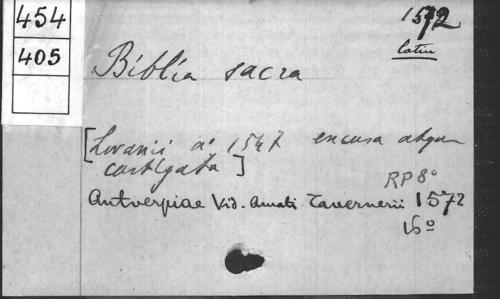 454
405
1572
latin
Biblia sacra
[Lovanii a° 1547 excusa atque
castigata]
RP 8°
Antverpiae Vid. Amati Tavernerii 1572
16°